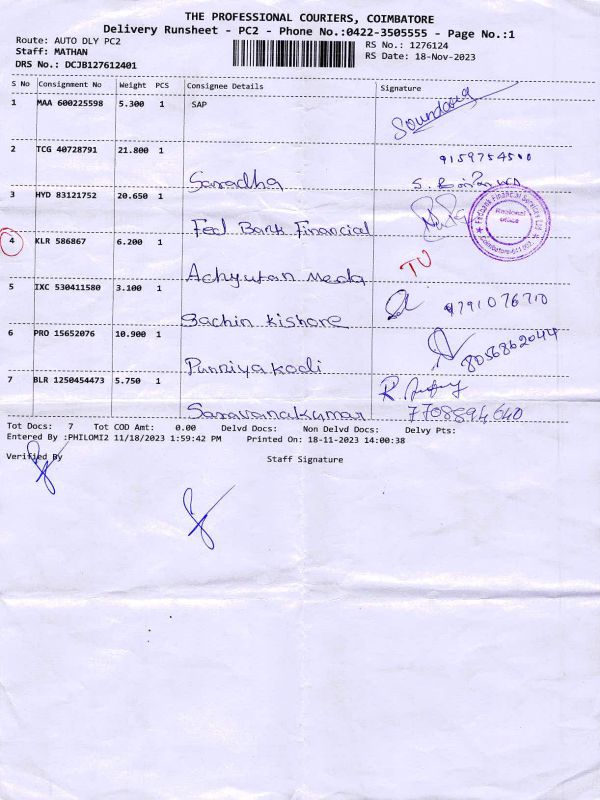 THE PROFESSIONAL COURIERS, COIMBATORE
Delivery Runsheet - PC2 - Phone No.:0422-3505555 - Page No.:1
Route: AUTO DLY PC2
RS No.: 1276124
Staff: MATHAN
RS Date: 18-Nov-2023
DRS No.: DCJB127612401
S No Consignment No Weight PCS Consignee Details Signature
1 MAA 600225598 5.300 1 SAP
Soundarya
2 TCG 40728791 21.800 1
9159754500
Saradha
3 HYD 83121752 20.650 1
Fed Bank Financial
Fedbank Financial Services Ltd
Regional Office
4 KLR 586867 6.200 1
Achyutan Meda
5 IXC 530411580 3.100 1
9791076710
Sachin Kishore
6 PRO 15652076 10.900 1
8056862044
Punniyakodi
7 BLR 1250454473 5.750 1
Saravanakumar 7708894640
Tot Docs: 7 Tot COD Amt: 0.00 Delvd Docs: Non Delvd Docs: Delvy Pts:
Entered By :PHILOMI2 11/18/2023 1:59:42 PM Printed On: 18-11-2023 14:00:38
Verified By Staff Signature